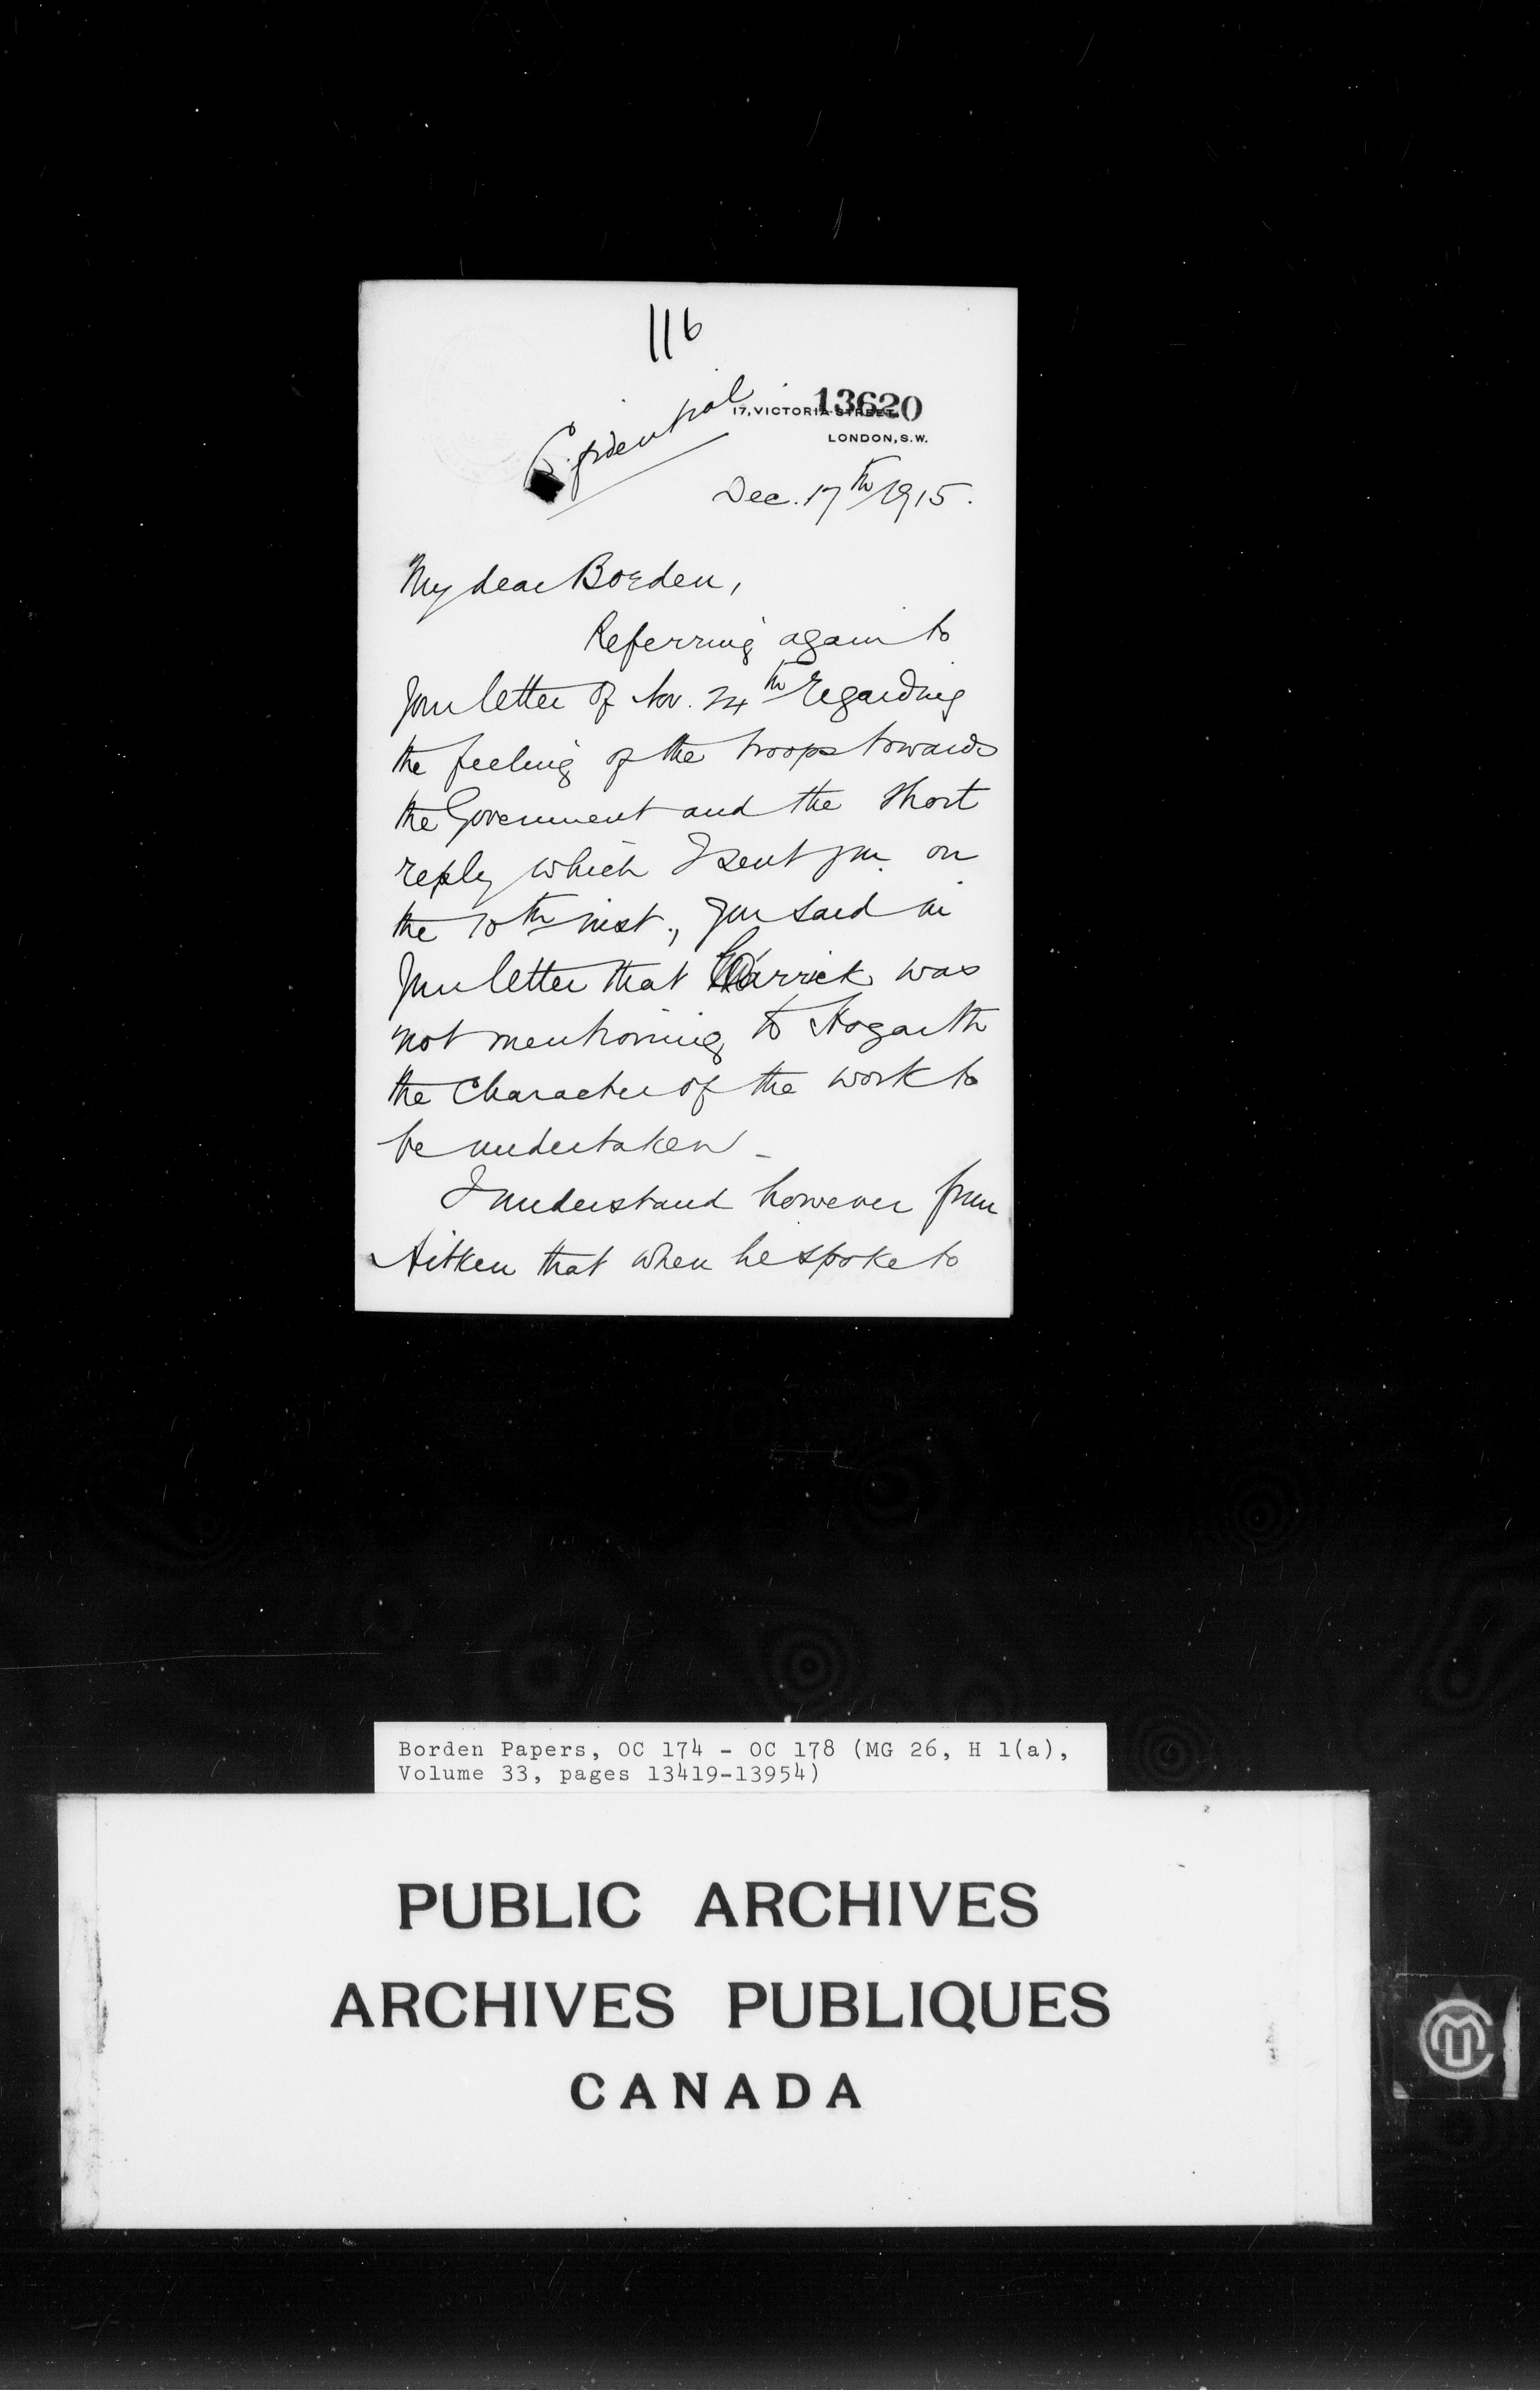 116
Confidential
13620
17, VICTORIA STREET,
LONDON, S.W.
Dec. 17th 1915.
My dear Borden,
Referring again to
your letter of Nov. 24th regarding
the feeling of the troops towards
the Government and the short
reply which I sent you on
the 10th inst., you said in
your letter that Carrick was
not mentioning to Hogarth
the character of the work to
be undertaken -
I understand however from
Aitken that when he spoke to
Borden Papers, OC 174 - OC 178 (MG 26, H 1(a),
Volume 33, pages 13419-13954)
PUBLIC ARCHIVES
ARCHIVES PUBLIQUES
CANADA